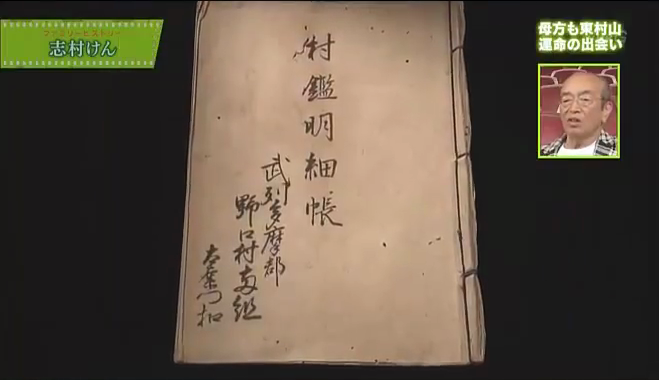 ファミリーヒストリー
志村けん
母方も東村山
運命の出会い
村鑑明細帳
武列多摩郡
野口村両組